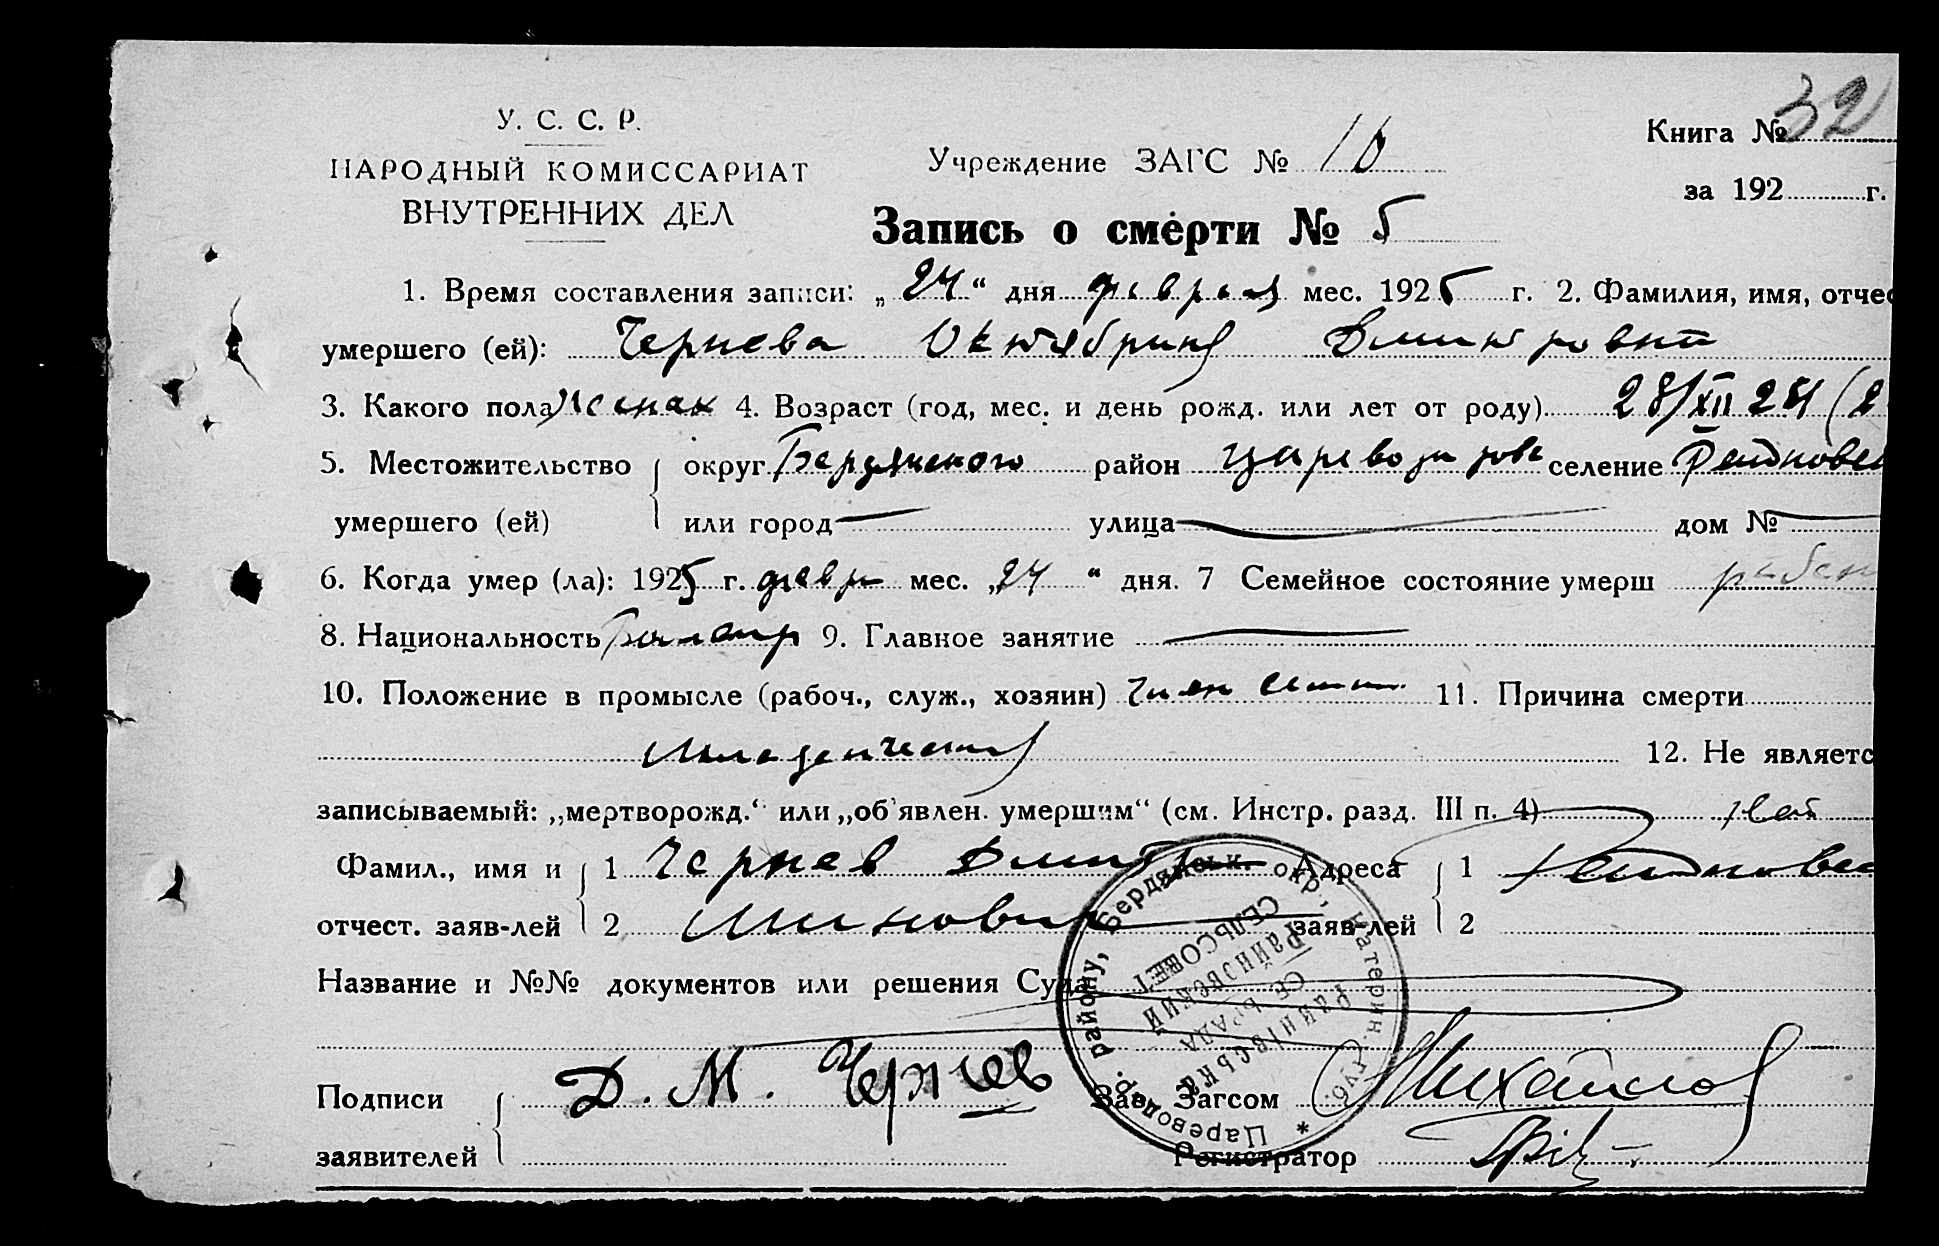 У. С. С. Р.
НАРОДНЫЙ КОМИССАРИАТ
ВНУТРЕННИХ ДЕЛ
Учреждение ЗАГС №
Книга № 32
за 192 г.
Запись о смерти № 5
1. Время составления записи: „24“ дня февраля мес. 1925 г. 2. Фамилия, имя, отчес
умершего (ей): Чернева Октябрина Дмитровна
3. Какого пола Женск 4. Возраст (год, мес. и день рожд. или лет от роду) 28/XII 24 (2
5. Местожительство округ Бердянского район селение
умершего (ей) или город — улица — дом № —
6. Когда умер (ла): 1925 г. февр мес. „24“ дня. 7 Семейное состояние умерш ребен
8. Национальность 9. Главное занятие —
10. Положение в промысле (рабоч., служ., хозяин) член семьи 11. Причина смерти
Младенческая
12. Не являетс
записываемый: „мертворожд.“ или „об'явлен. умершим“ (см. Инстр. разд. III п. 4)
Фамил., имя и 1 Чернев Дмитр Адреса 1
отчест. заяв-лей 2 Минович заяв-лей 2
Название и №№ документов или решения Суда
Подписи Д. М. Чернев Зав. Загсом Михайлов
заявителей Регистратор
Цареводар. району, Бердянськ. окр., Катерин. губ. *
РАЙНІВСЬКА
СЕЛЬРАДА
РАЙНОВСКИЙ
СЕЛЬСОВЕТ